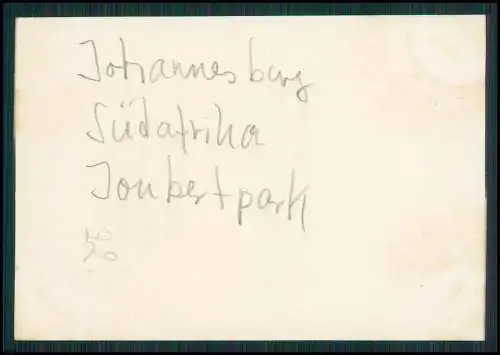 Johannesburg
Südafrika
Joubertpark